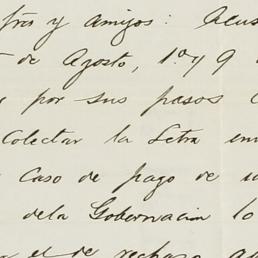 tros y amigos: Acus
de Agosto, 1º y 9
por sus pasos
Colectar la Letra en
Caso de pago de
dela Gobernacion lo
el de rechazo